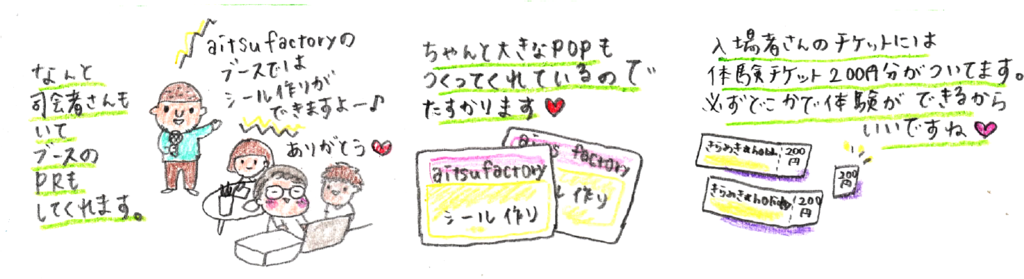 なんと
司会者さんも
いて
ブースの
PRも
してくれます。
aitsufactoryの
ブースでは
シール作りが
できますよー♪
ありがとう♥
ちゃんと大きなPOPも
つくってくれているので
たすかります♥
aitsu factory
シール作り
aitsufactory
シール作り
入場者さんのチケットには
体験チケット200円分がついてます。
必ずどこかで体験ができるから
いいですね♥
200円
200円
200円